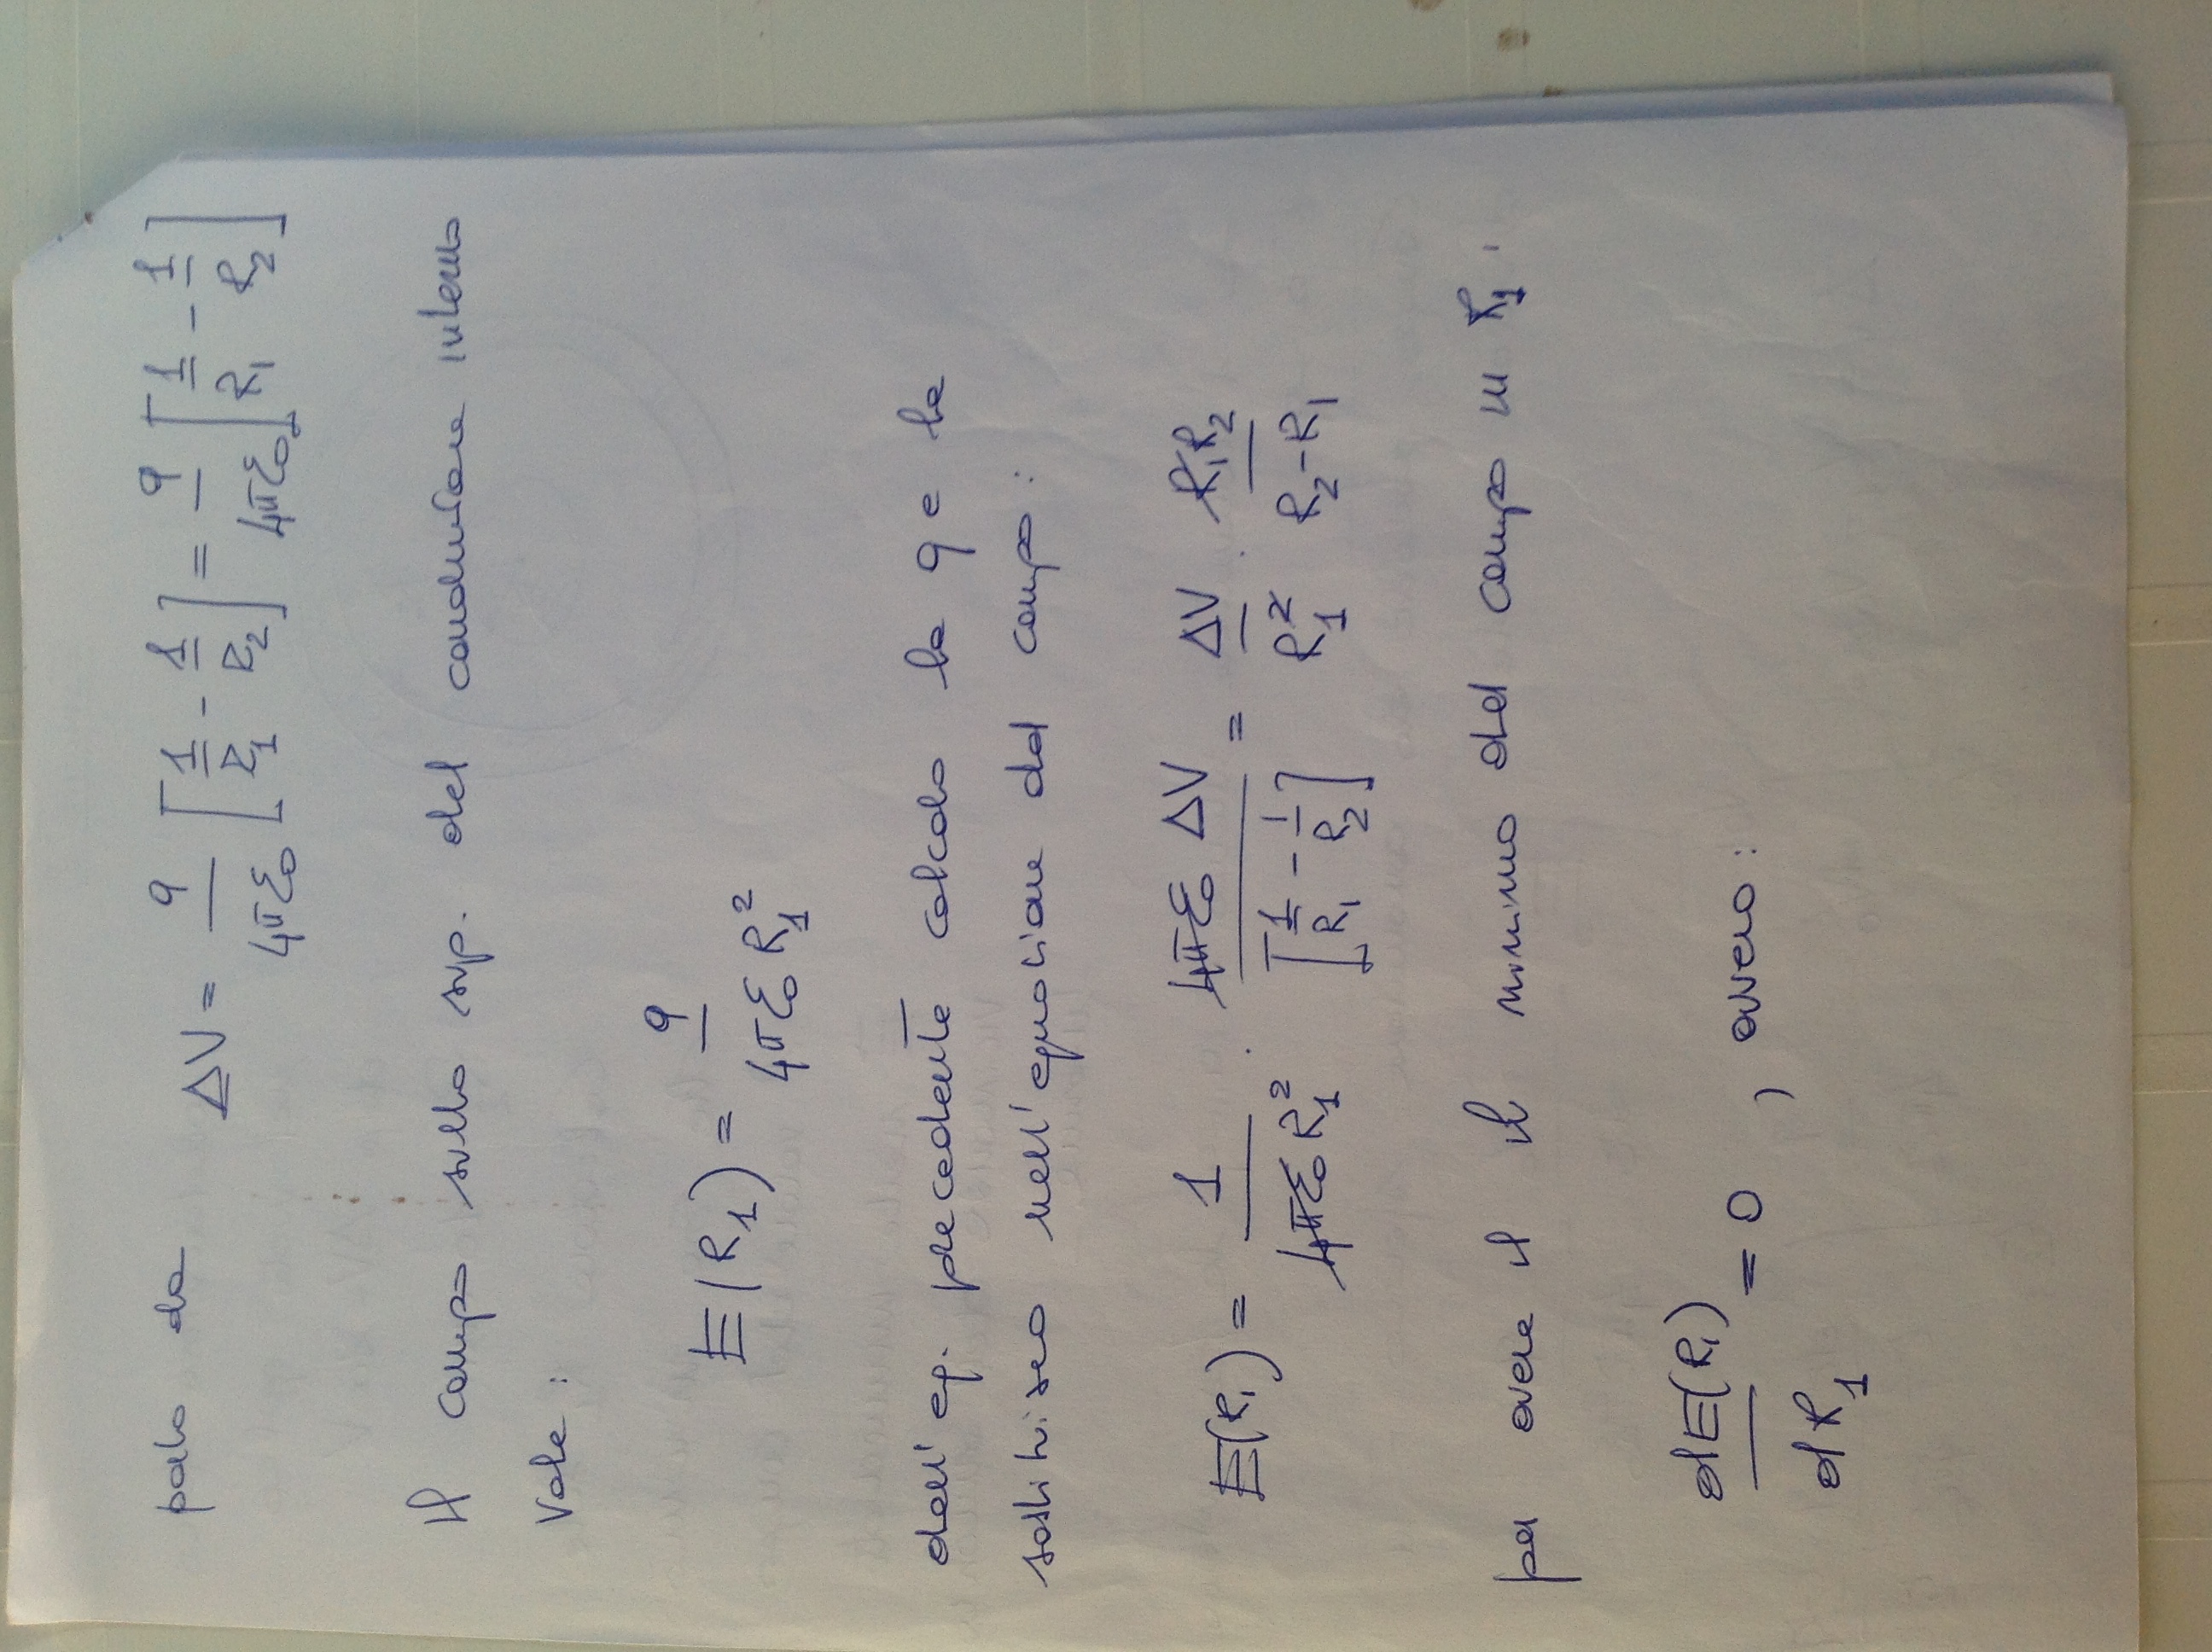 parto da ΔV = q/4πε₀ [1/R₁ - 1/R₂] = q/4πε₀ [1/R₁ - 1/R₂]
Il campo sulla sup. del conduttore interno
Vale :
E(R₁) = q/4πε₀R₁²
dall'eq. precedente calcolo la q e la
sostituisco nell'equazione del campo :
E(R₁) = 1/4πε₀R₁² · 4πε₀ ΔV/[1/R₁ - 1/R₂] = ΔV/R₁² · R₁R₂/R₂-R₁
per avere il il minimo del campo in R₁ .
dE(R₁)/dR₁ = 0 , ovvero :